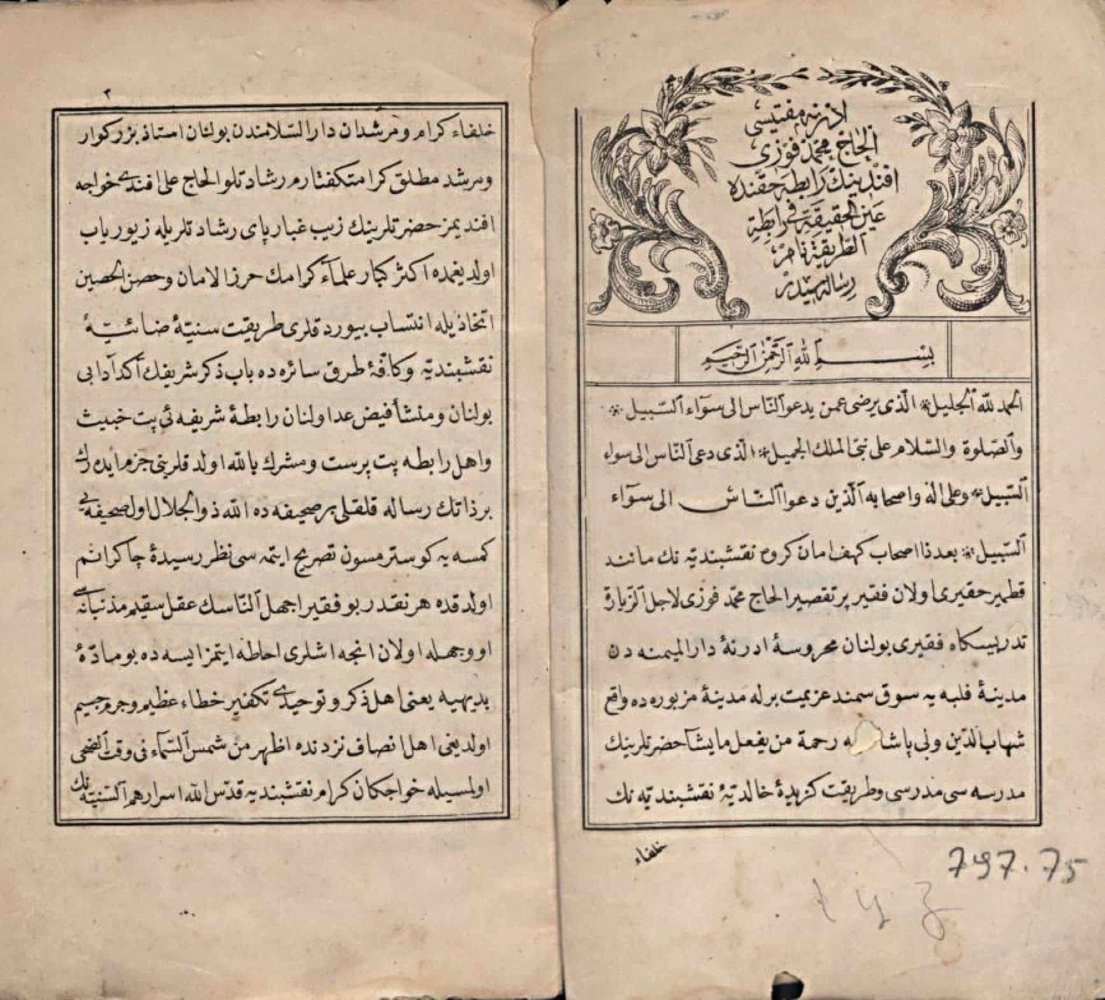 ادرنه مفتيسى
الحاج محمد فوزى
افندينك رابطه حقنده
عين الحقيقة فى رابطة
الطريقة نام
رساله سيدر
بسم الله الرحمن الرحيم
الحمد لله الجليل * الذى يرضى عمن يدعو الناس الى سوآء السبيل *
والصلوة والسلام على نبى الملك الجميل * الذى دعى الناس الى سواء
السبيل * وعلى اله واصحابه الذين دعوا الناس الى سوآء
السبيل * بعدذا اصحاب كهف امان كروه نقشبنديه نك مانند
قطمير حقيرى اولان فقير پر تقصير الحاج محمد فوزى لاجل الزيارة
تدريسكاه فقيرى بولنان محروسهٔ ادرنهٔ دار الميمنه دن
مدينهٔ فلبه يه سوق سمند عزيمت برله مدينهٔ مزبوره ده واقع
شهاب الدين ولى پاشا له رحمة من يفعل ما يشآ حضرتلرينك
مدرسه سى مدرسى وطريقت كزيدهٔ خالديهٔ نقشبنديه نك
خلفاء
797.75
٢
خلفاء كرام ومرشدان دار السلامندن بولنان استاذ بزركوار
ومرشد مطلق كرامتكفتارم رشادتلو الحاج على افندى خواجه
افنديمز حضرتلرينك زيب غبارپاى رشادتلريله زيورياب
اولديغمده اكثر كبار علمآء كرامك حرز الامان وحصن الحصين
اتخاذيله انتساب بيوردقلرى طريقت سنيهٔ ضائيهٔ
نقشبنديه وكافهٔ طرق سائره ده باب ذكر شريفك آكد آدابى
بولنان ومنشأ فيض عد اولنان رابطهٔ شريفه ئى پت خبيث
واهل رابطه پت پرست ومشرك بالله اولدقلرينى جزما يدرك
بر ذاتك رساله قلقلى بر صحيفه ده الله ذو الجلال اول صحيفه يى
كمسه يه كوسترمسون تصريح ايتمه سى نظر رسيدهٔ چاكرانم
اولدقده هر نقدر بو فقير اجهل الناسك عقل سقيم مذنبانه
او وجهله اولان انجه اشلرى احاطه ايتمز ايسه ده بو مادهٔ
بديهيه يعنى اهل ذكر وتوحيدى تكفير خطاء عظيم وجرم جسيم
اولديغى اهل انصاف نزدنده اظهر من شمس السمآء فى وقت الضحى
اولمسيله خواجكان كرام نقشبنديه قدس الله اسرارهم السنيه نك